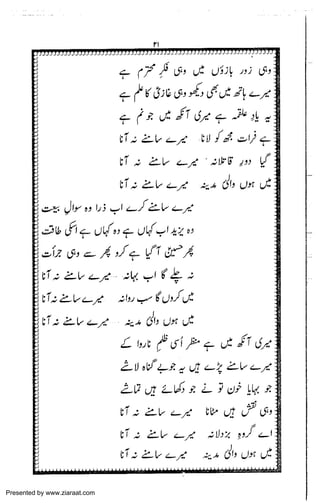 ۳۱
وہی زور بازوؤں میں وہی فکرِ محترم ہے
میرے ہاتھ میں بھی دیکھو وہی غازیؑ کا علم ہے
یہ یادِ علقمہ ہے میری آنکھ میں جو نم ہے
ہے فرات مجھ کو لانا میرے سامنے نہ آنا
گیا دورِ قاتلانہ میرے سامنے نہ آنا
میں ہوں والیٔ مدینہ میرے سامنے نہ آنا
میرے سامنے کرے اب ذرا وہ سوالِ بیعت
وہ یزید اب کہاں ہے وہ کہاں ہے اسکی طاقت
پھر حسینؑ آ گیا ہے کرو پھر سے وہی جرأت
نہ چلے گا اب بہانہ میرے سامنے نہ آنا
میں کروں گا سب روانہ میرے سامنے نہ آنا
میں ہوں والیٔ مدینہ میرے سامنے نہ آنا
میری آنکھ میں ہے منظر اُسی ظلمِ ناروا کے
میرے سامنے پڑے ہیں یہ جو بے گناہ لاشے
جو بہایا خون تو نے جو دکھائے ہیں تماشے
وہی نقش ہیں مٹانا میرے سامنے نہ آنا
اے گروہِ بزدلانہ میرے سامنے نہ آنا
میں ہوں والیٔ مدینہ میرے سامنے نہ آنا
Presented by www.ziaraat.com